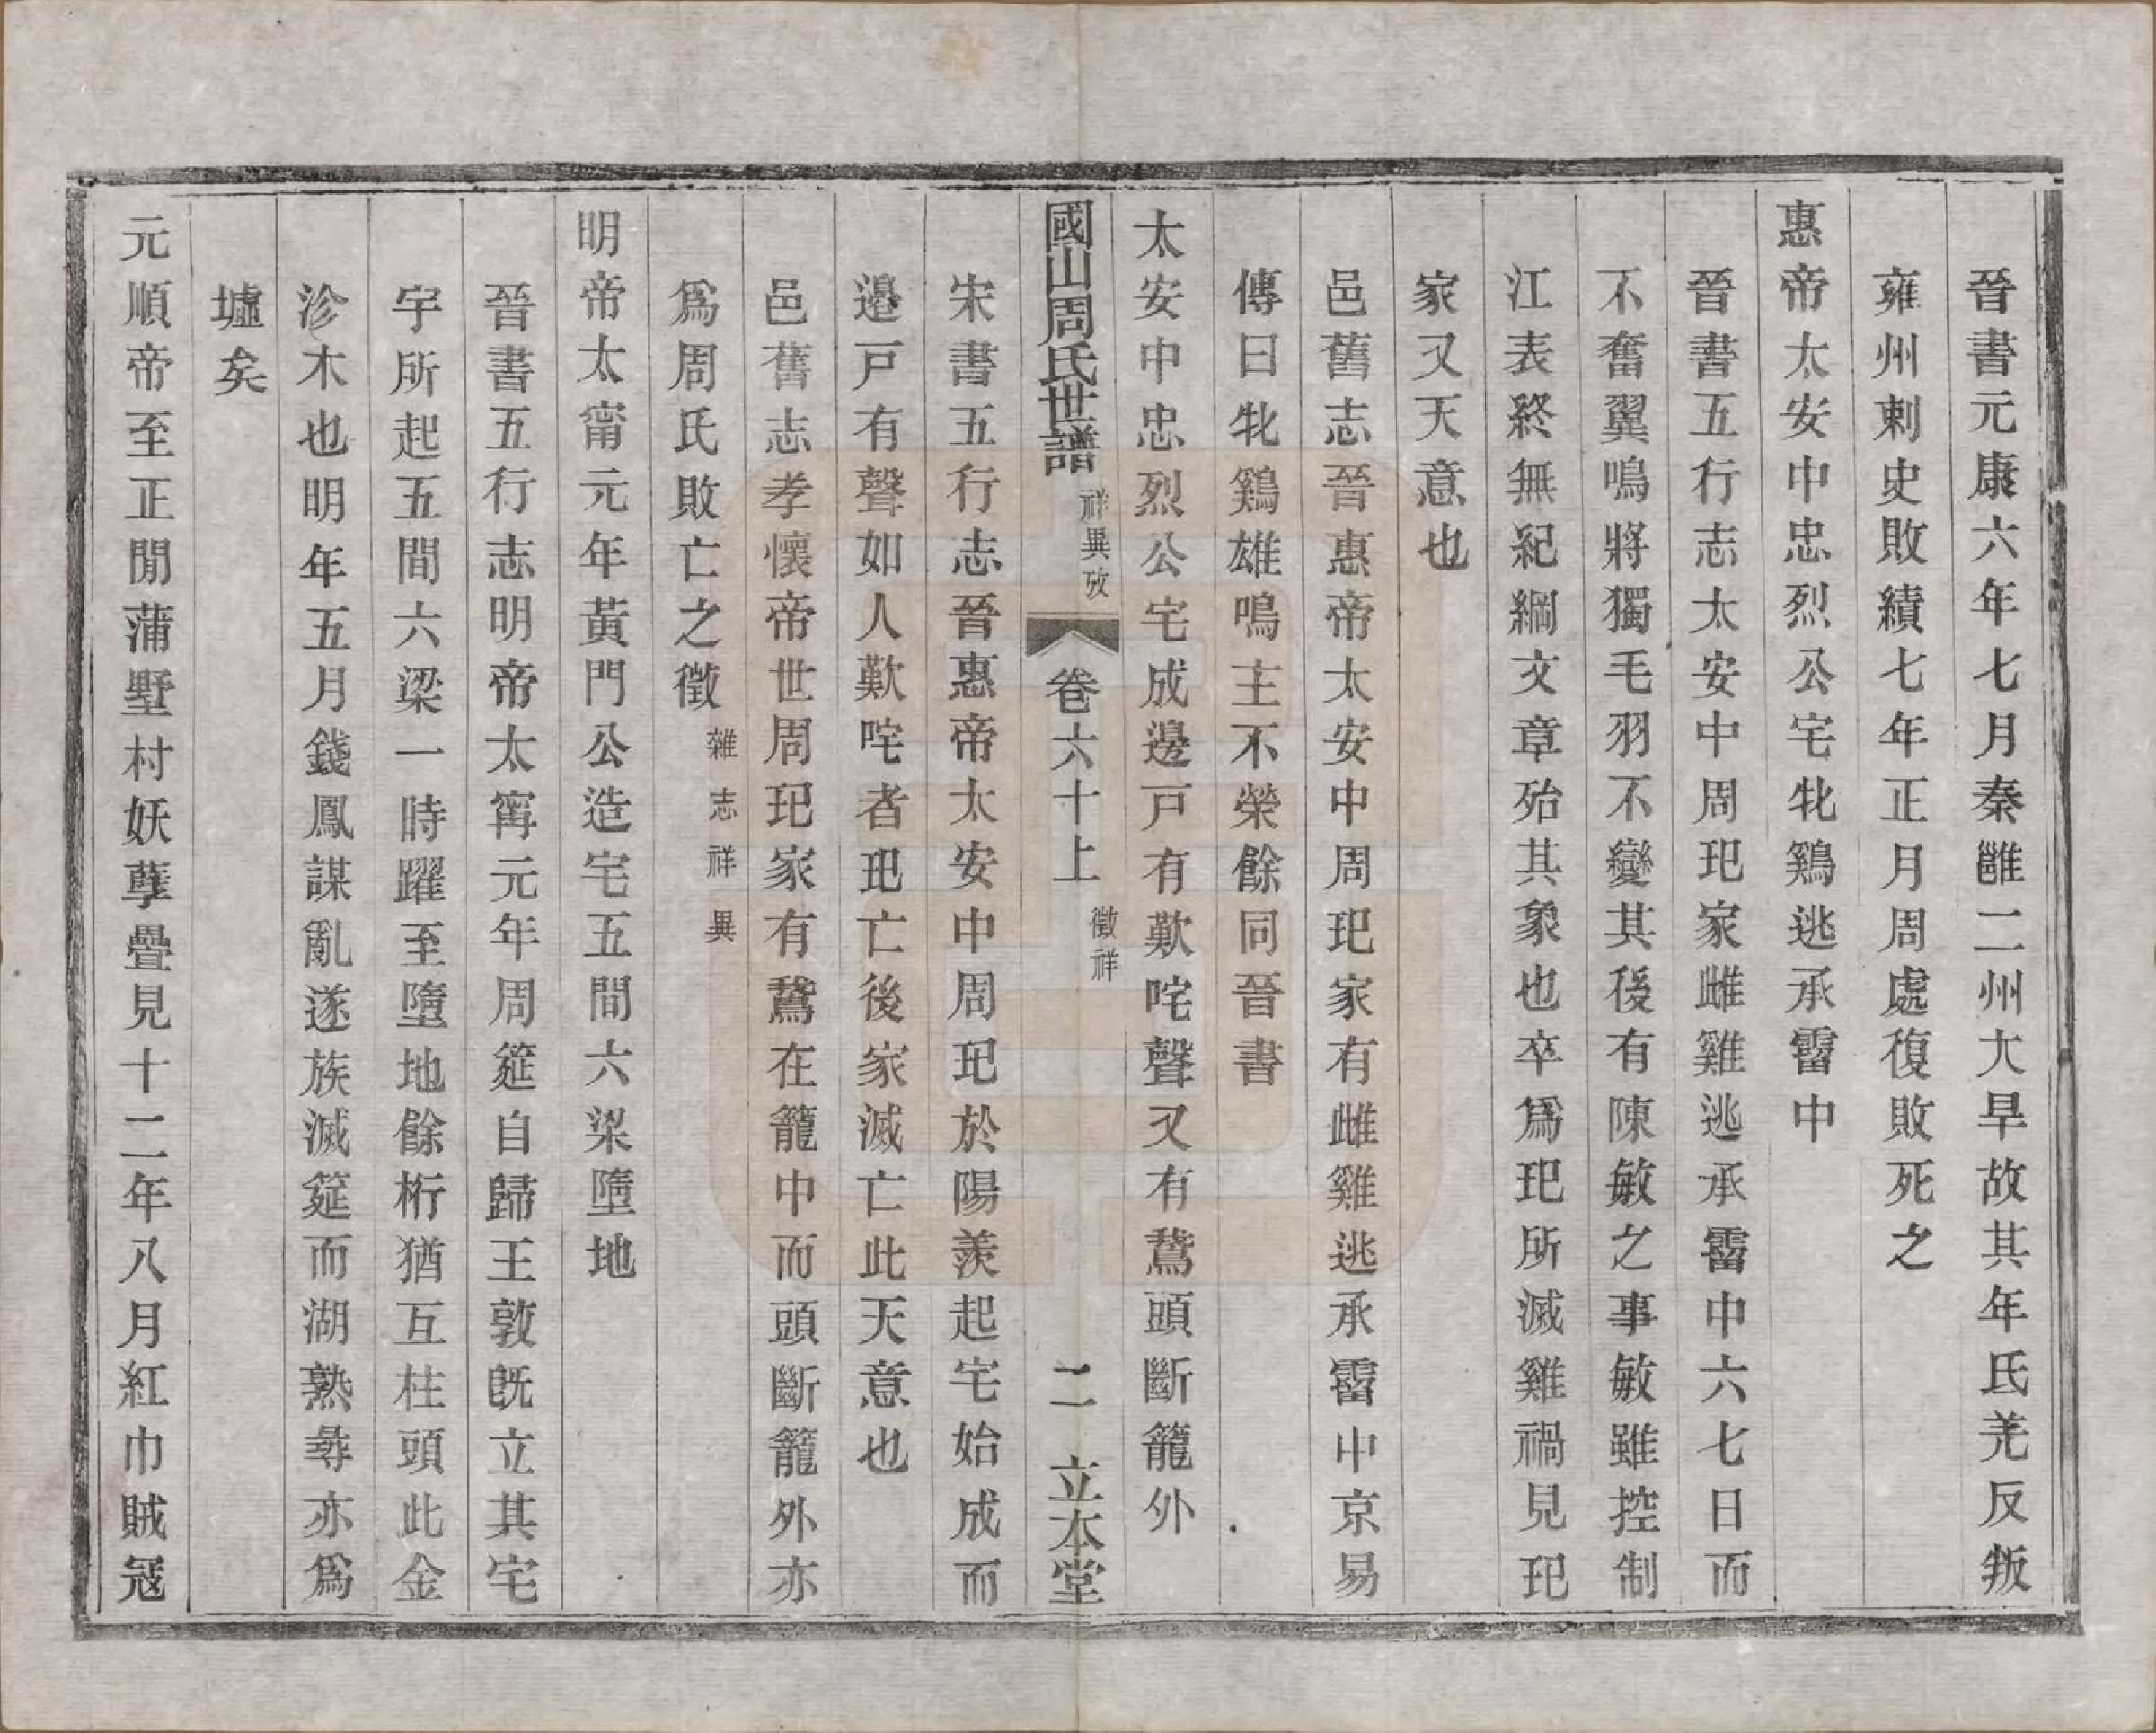 晉書元康六年七月秦雝二州大旱故其年氐羌反叛
雍州刺史敗績七年正月周處復敗死之
惠帝太安中忠烈公宅牝鷄逃承霤中
晉書五行志太安中周玘家雌雞逃承霤中六七日而
不奮翼鳴將獨毛羽不變其後有陳敏之事敏雖控制
江表終無紀綱文章殆其象也卒爲玘所滅雞禍見玘
家又天意也
邑舊志晉惠帝太安中周玘家有雌雞逃承霤中京易
傳曰牝鷄雄鳴主不榮餘同晉書
太安中忠烈公宅成邊戸有歎咤聲又有鵞頭斷籠外
國山周氏世譜 祥異攷 卷六十上 徵祥 二 立本堂
宋書五行志晉惠帝太安中周玘於陽羨起宅始成而
邊戸有聲如人歎咤者玘亡後家滅亡此天意也
邑舊志孝懷帝世周玘家有鵞在籠中而頭斷籠外亦
爲周氏敗亡之徵 雜志祥異
明帝太甯元年黃門公造宅五間六梁墮地
晉書五行志明帝太寗元年周筵自歸王敦旣立其宅
宇所起五間六梁一時躍至墮地餘桁猶亙柱頭此金
沴木也明年五月錢鳳謀亂遂族滅筵而湖熟尋亦爲
墟矣
元順帝至正閒蒲墅村妖孽疊見十二年八月紅巾賊寇